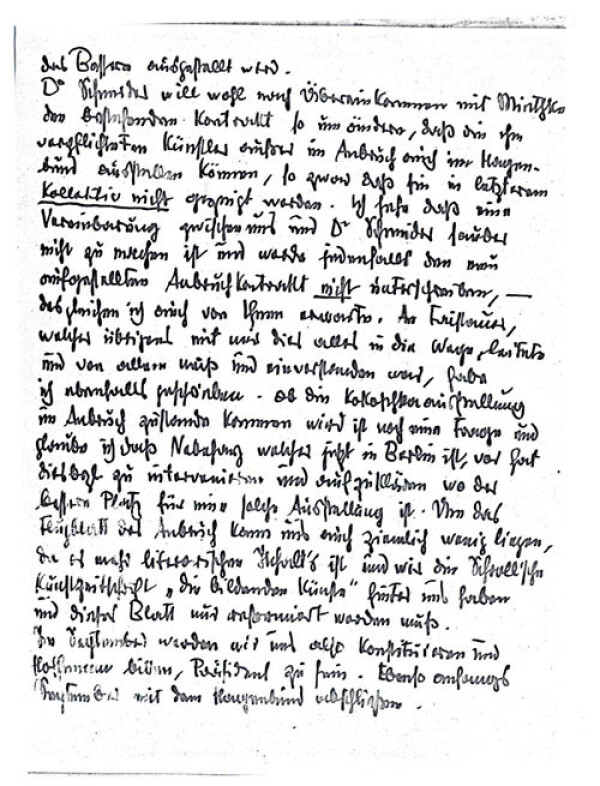 des Bessern ausgestellt wird.
Dr Schneider will wohl nach Übereinkommen mit
den bestehenden Kontrakt so umändern, daß die ihm
verpflichteten Künstler außer im Anbruch auch im Hagen-
bund ausstellen können, so zwar daß sie in letzterem
Kollektiv nicht gezeigt werden. Ich sehe daß eine
Vereinbarung zwischen uns und Dr Schneider sauber
nicht zu machen ist und werde jedenfalls den neu
aufgestellten Anbruchkontrakt nicht unterschreiben, —
desgleichen ich auch von Ihnen erwarte. An Faistauer,
welcher übrigens mit mir dies alles in die Wege leitete
und von allem muß und einverstanden war, habe
ich ebenfalls geschrieben. Ob die Kokoschkaausstellung
im Anbruch zustande kommen wird ist noch eine Frage und
glaube ich daß Nebehay welcher jetzt in Berlin ist, vor hat
diesbezgl zu intervenieren und aufzuklären wo der
bessere Platz für eine solche Ausstellung ist. Um das
Flugblatt des Anbruch kann uns auch ziemlich wenig liegen,
da es mehr literarischen Inhalt's ist und wir die
Kunstzeitschrift „die bildenden Künste" hinter uns haben
und dieses Blatt nur reformiert werden muß.
Im September werden wir uns also Konstituieren und
Hoffmann bitten, Präsident zu sein. Ebenso anfangs
September mit dem Hagenbund abschließen.